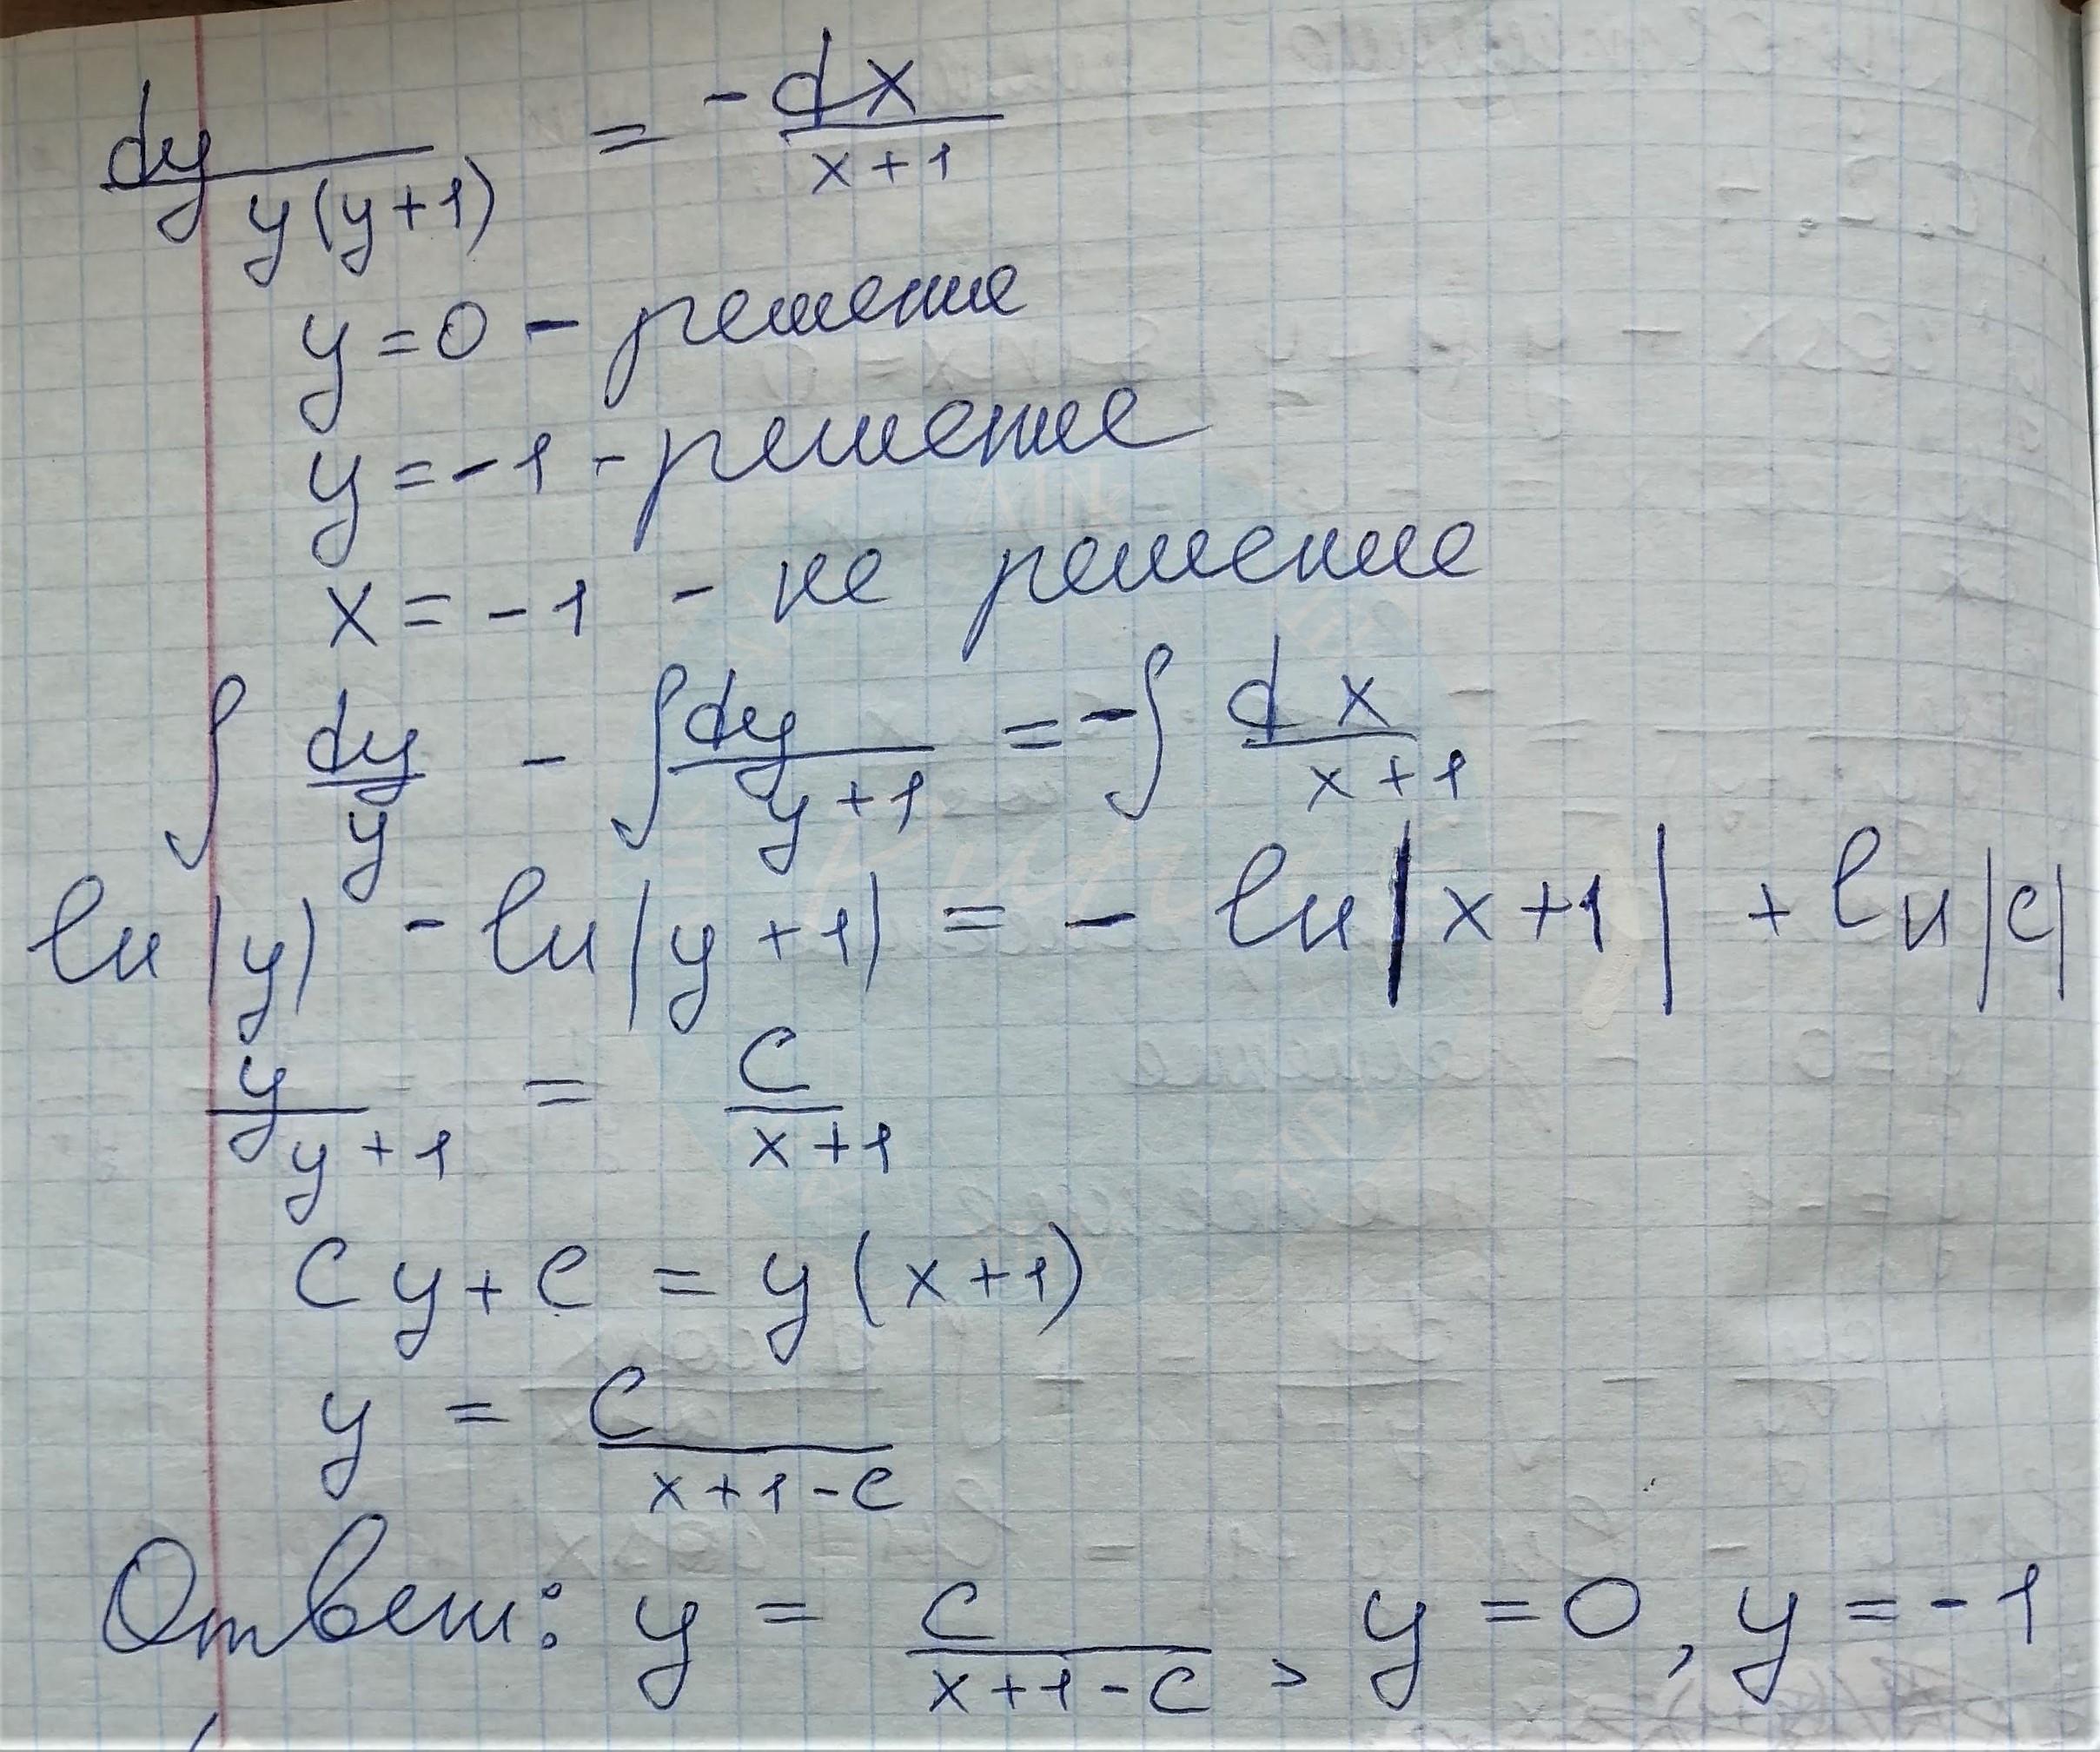 dy/y(y+1) = -dx/x+1
y=0 - решение
y=-1 - решение
x=-1 - не решение
∫ dy/y - ∫ dy/y+1 = -∫ dx/x+1
ln|y| - ln|y+1| = - ln|x+1| + ln|C|
y/y+1 = C/x+1
Cy+C = y(x+1)
y = C/x+1-C
Ответ: y = C/x+1-C, y=0, y=-1